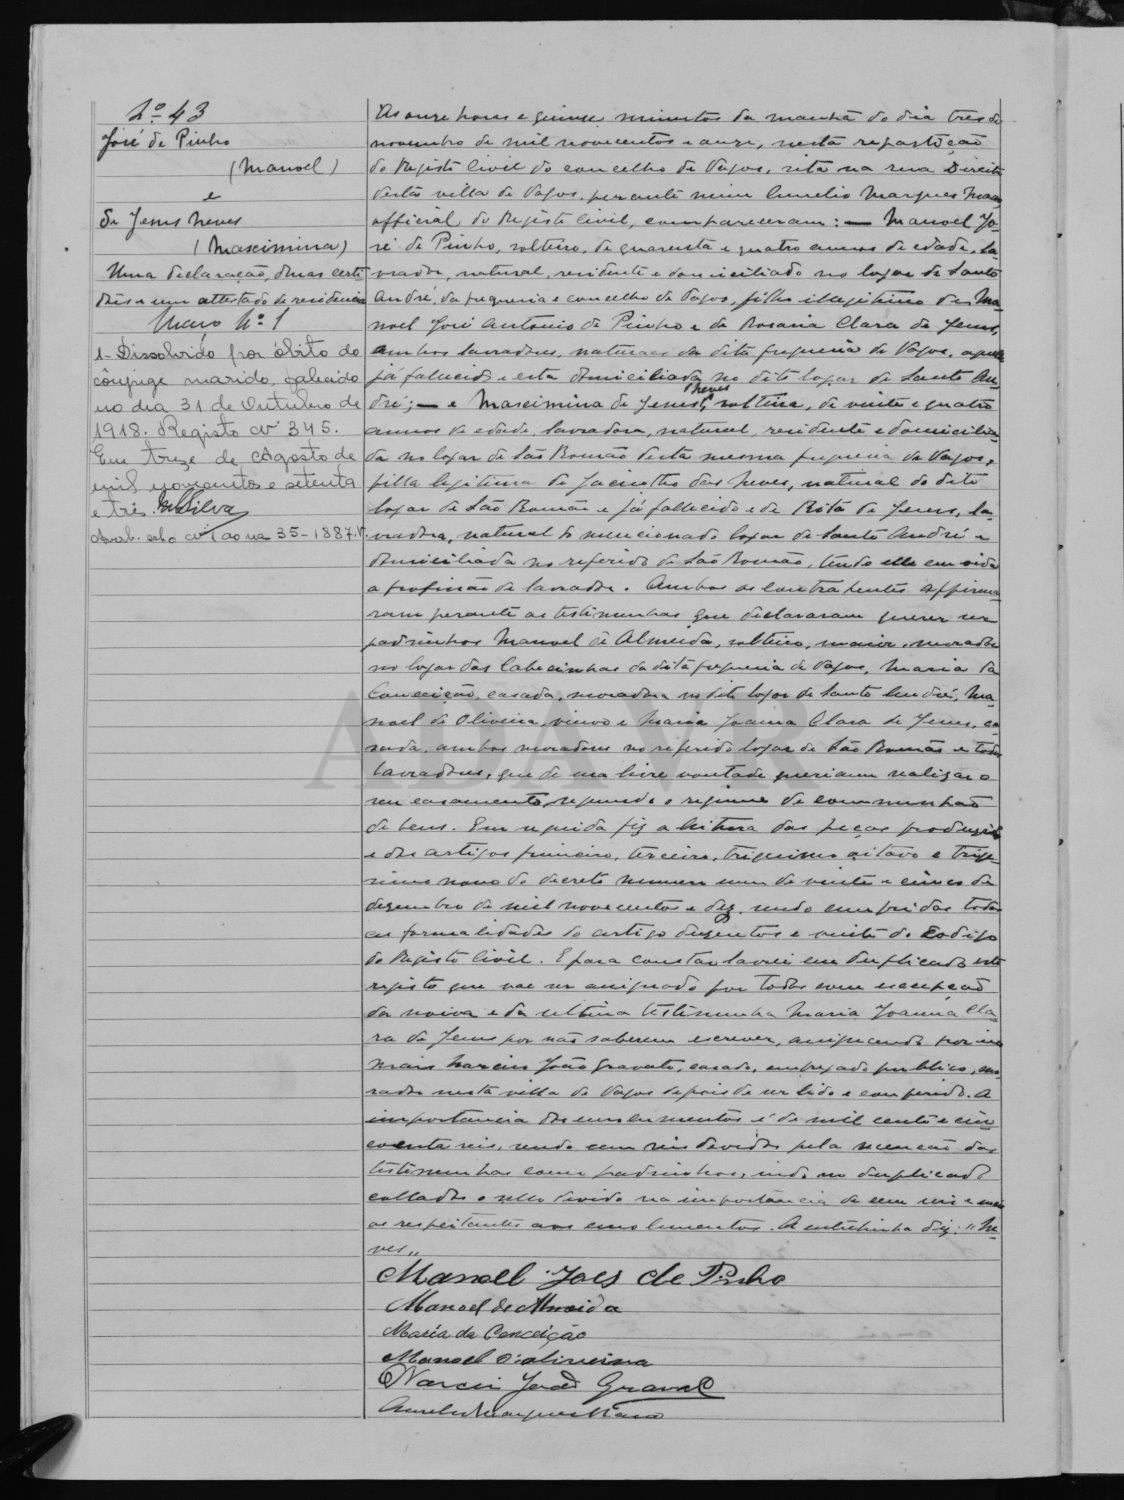 Nº 43
José de Pinho
(Manoel)
e
de Jesus Neves
(Mascimina)
Uma declaração, duas certi
dões e um attestado de residencia
Maço Nº 1
1 - Dissolvido por óbito do
cônjuge marido, falecido
no dia 31 de Outubro de
1918. Registo nº 345.
Em treze de Agosto de
mil novecentos e setenta
e três. Silva
As onze horas e quinze minutos da manhã do dia tres de
novembro de mil novecentos e onze, nesta repartição
do Registo Civil do concelho de Vagos, sita na rua Direita
desta villa de Vagos, perante mim Aurelio Marques Mano
official do Registo Civil, compareceram: — Manoel Jo-
sé de Pinho, solteiro, de quarenta e quatro annos de edade, la-
vrador, natural, residente e domiciliado no logar de Santo
André, da freguesia e concelho de Vagos, filho illegitimo de Ma-
noel José Antonio de Pinho e de Rosaria Clara de Jesus,
ambos lavradores, naturaes da dita freguesia de Vagos, aquelle
já fallecido e esta domiciliada no dito logar de Santo An-
dré; — e Mascimina de Jesus Neves, solteira, de vinte e quatro
annos de edade, lavradora, natural, residente e domicilia-
da no logar de São Romão desta mesma freguesia de Vagos,
filha legitima de Jacintho das Neves, natural do dito
logar de São Romão e já fallecido e de Rita de Jesus, la-
vradora, natural do mencionado logar de Santo André e
domiciliada no referido de São Romão, tendo elle em vida
a profissão de lavrador. Ambos os contrahentes affirma-
ram perante as testimunhas que declararam querer ser
padrinhos Manoel de Almeida, solteiro, maior, morador
no logar das Cabecinhas da dita freguesia de Vagos, Maria da
Conceição, casada, moradora no dito logar de Santo André, Ma-
noel de Oliveira, viuvo e Maria Joanna Clara de Jesus, ca-
sada, ambos moradores no referido logar de São Romão e todos
lavradores, que de sua livre vontade queriam realizar o
seu casamento, segundo o regimen de communhão
de bens. Em seguida fiz a leitura das peças produzidas
e dos artigos primeiro, terceiro, trigesimo oitavo e trige-
simo nono do decreto numero um de vinte e cinco de
dezembro de mil novecentos e dez, sendo cumpridas todas
as formalidades do artigo duzentos e vinte do Codigo
do Registo Civil. E para constar lavrei em duplicado este
registo que vae ser assignado por todos com excepção
da noiva e da ultima testimunha Maria Joanna Cla-
ra de Jesus por não saberem escrever, assignando por
mais Narciso João Gravato, casado, empregado publico, mo-
rador nesta villa de Vagos depois de ser lido e conferido. A
importancia dos emolumentos é de mil cento e cin-
coenta reis, sendo cem reis devidos pela menção das
testimunhas como padrinhos, indo no duplicado
collados o sello devido na importancia de cem reis e mais
os respeitantes aos emolumentos. A entrelinha diz: "Ne-
ves"
Manoel Joes de Pinho
Manoel de Almeida
Maria da Conceição
Manoel d'oliveira
Narciso João Gravato
Aurelio Marques Mano
ADAVR